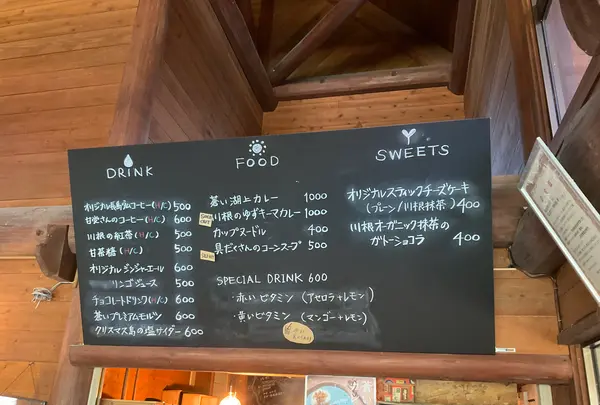 DRINK
オリジナル長島ダムコーヒー(H/C) 500
甘党さんのコーヒー(H/C) 600
川根の紅茶(H/C) 500
甘茶橙(H/C) 500
オリジナルジンジャーエール 600
リンゴジュース 500
チョコレートドリンク(H/C) 600
蒼いプレミアムモルツ 600
クリスマス島の塩サイダー 600
FOOD
蒼い湖上カレー 1000
川根のゆずキーマカレー 1000
カップヌードル 400
具だくさんのコーンスープ 500
SPECIAL DRINK 600
・赤いビタミン (アセロラ+レモン)
・黄いビタミン (マンゴー+レモン)
SWEETS
オリジナルスティックチーズケーキ
(プレーン/川根抹茶) 400
川根オーガニック抹茶の
ガトーショコラ 400